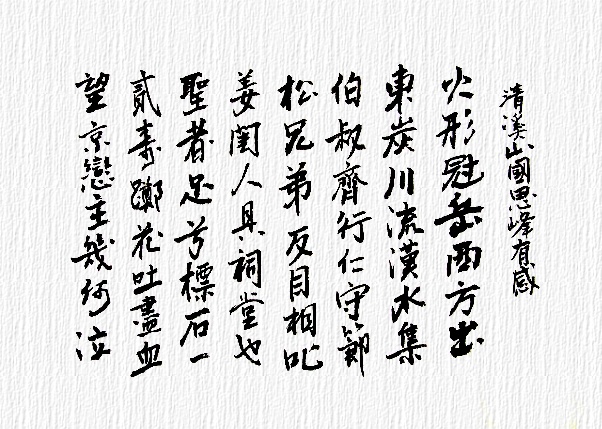 清溪山國思峰有感
火形冠岳西方出
東炭川流漢水集
伯叔齊行仁守節
松兄弟反目相叱
姜人具祠堂也
聖者足兮標石一
貳壽躑花吐盡血
望京戀主幾何泣